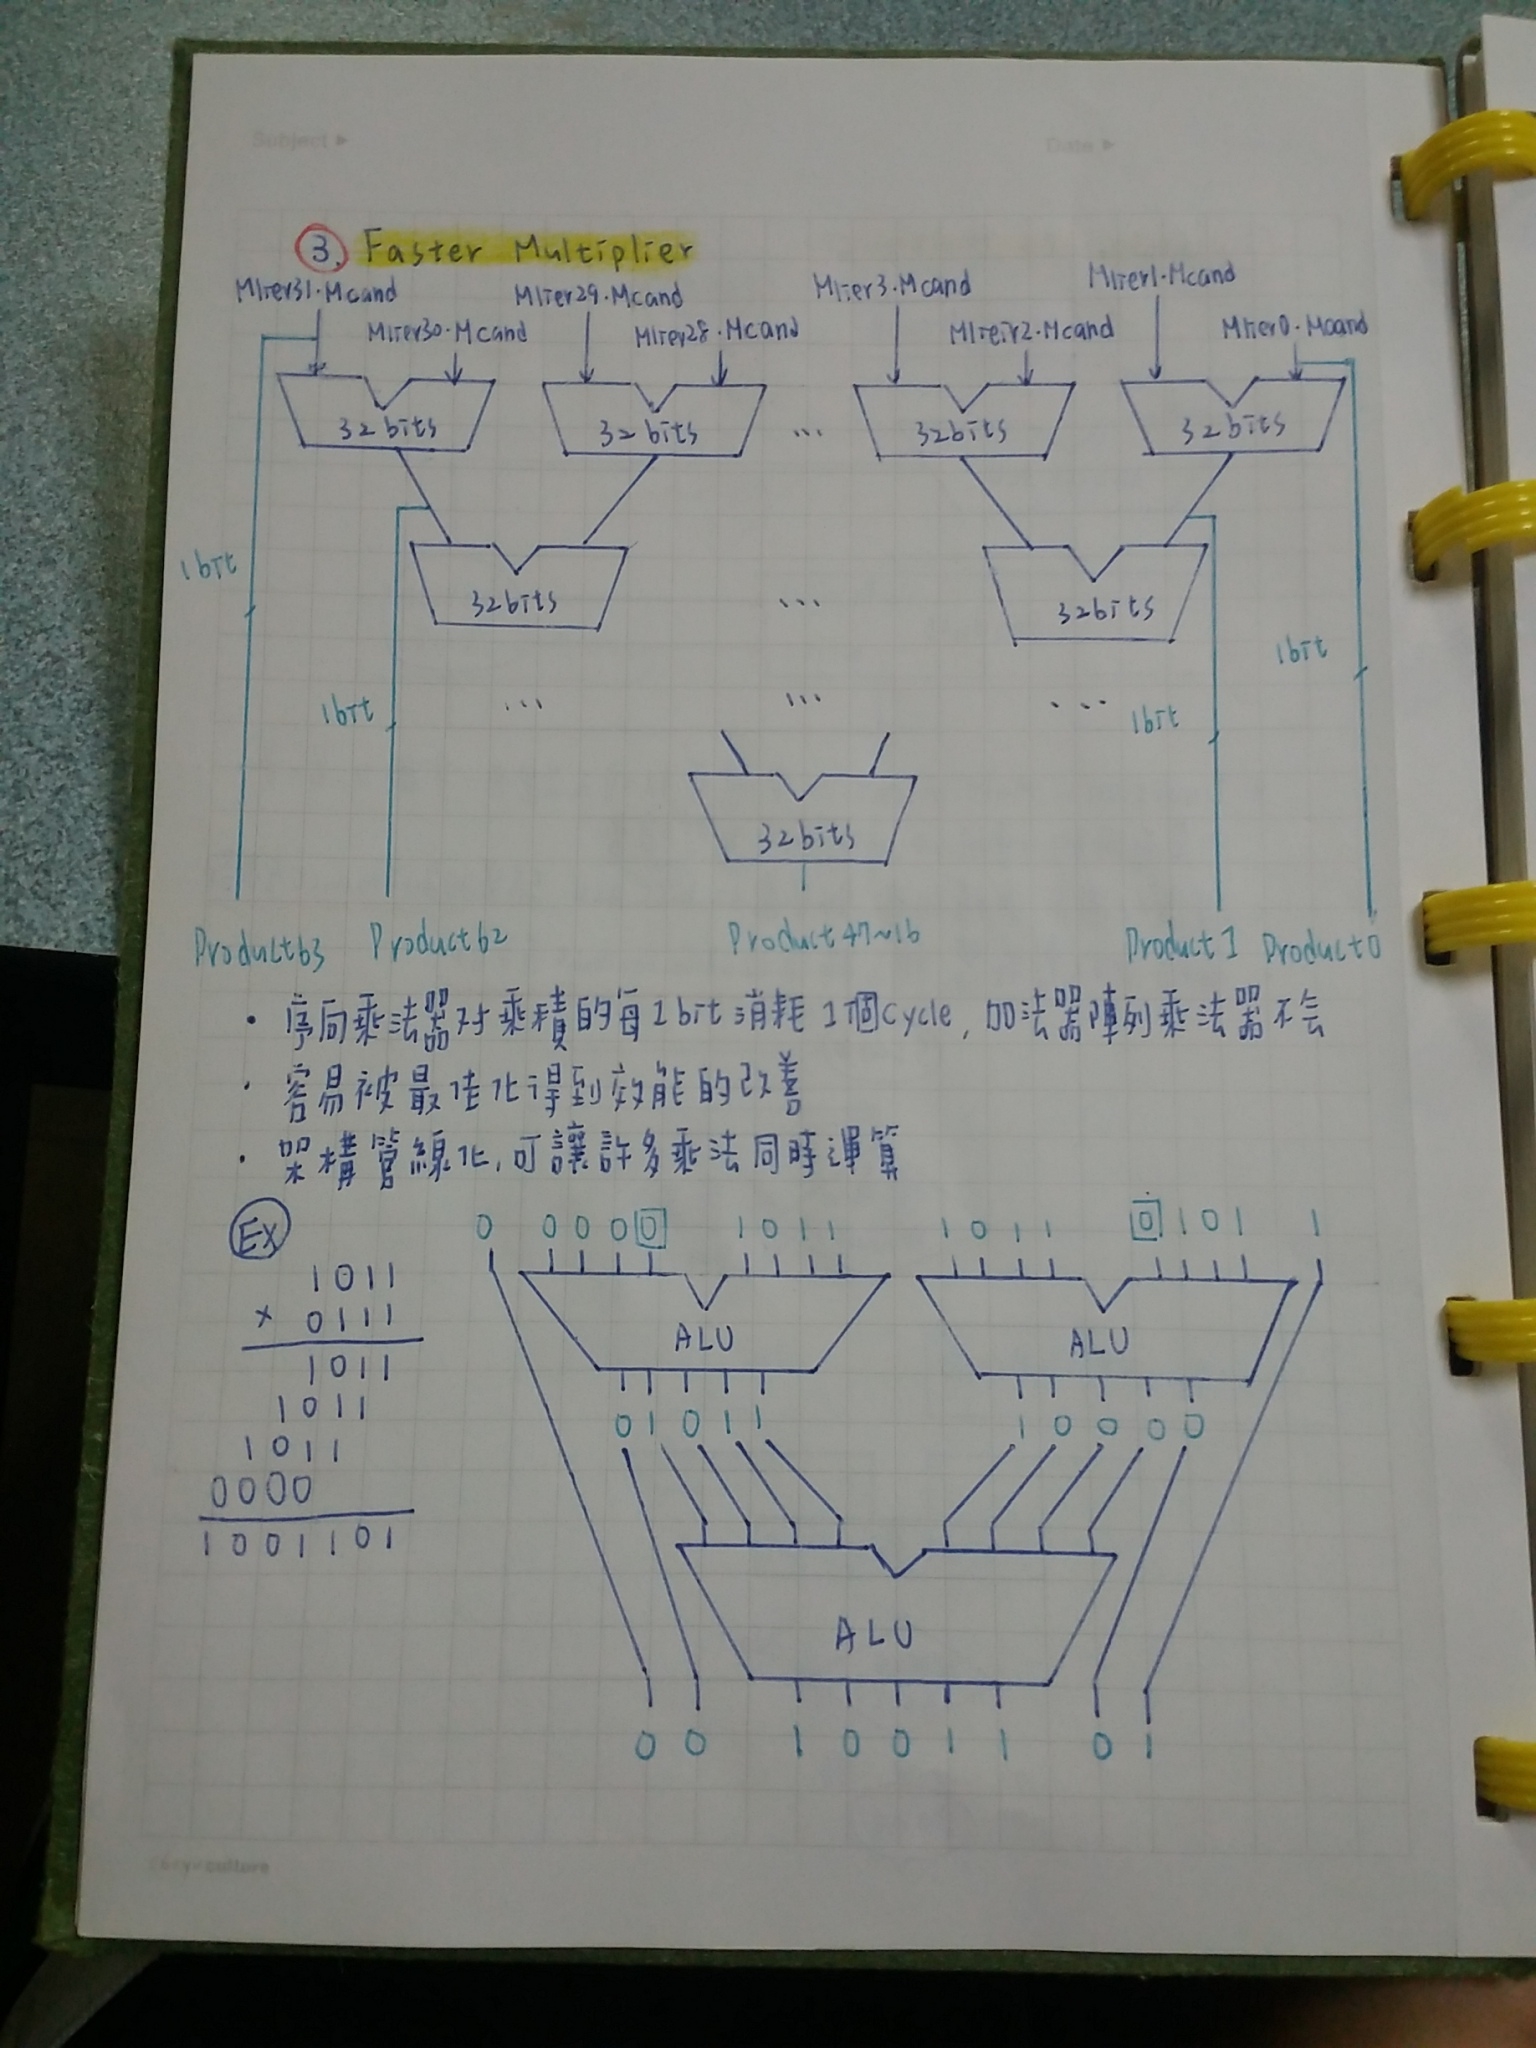 Subject ▸ Date ▸
3. Faster Multiplier
Mlier31·Mcand Mlier29·Mcand Mlier3·Mcand Mlier1·Mcand
Mlier30·Mcand Mlier28·Mcand Mlier2·Mcand Mlier0·Mcand
32bits 32bits ... 32bits 32bits
1bit
32bits ... 32bits
1bit
1bit ... ... ... 1bit
32bits
Product63 Product62 Product47~16 Product1 Product0
· 序向乘法器对乘積的每1bit消耗1個Cycle, 加法器陣列乘法器不会
· 容易被最佳化得到效能的改善
· 架構管線化,可讓許多乘法同時運算
EX
1011
× 0111
1011
1011
1011
0000
1001101
0 0000 1011 1011 0101 1
ALU ALU
01011 10000
ALU
0 0 10011 0 1
culture